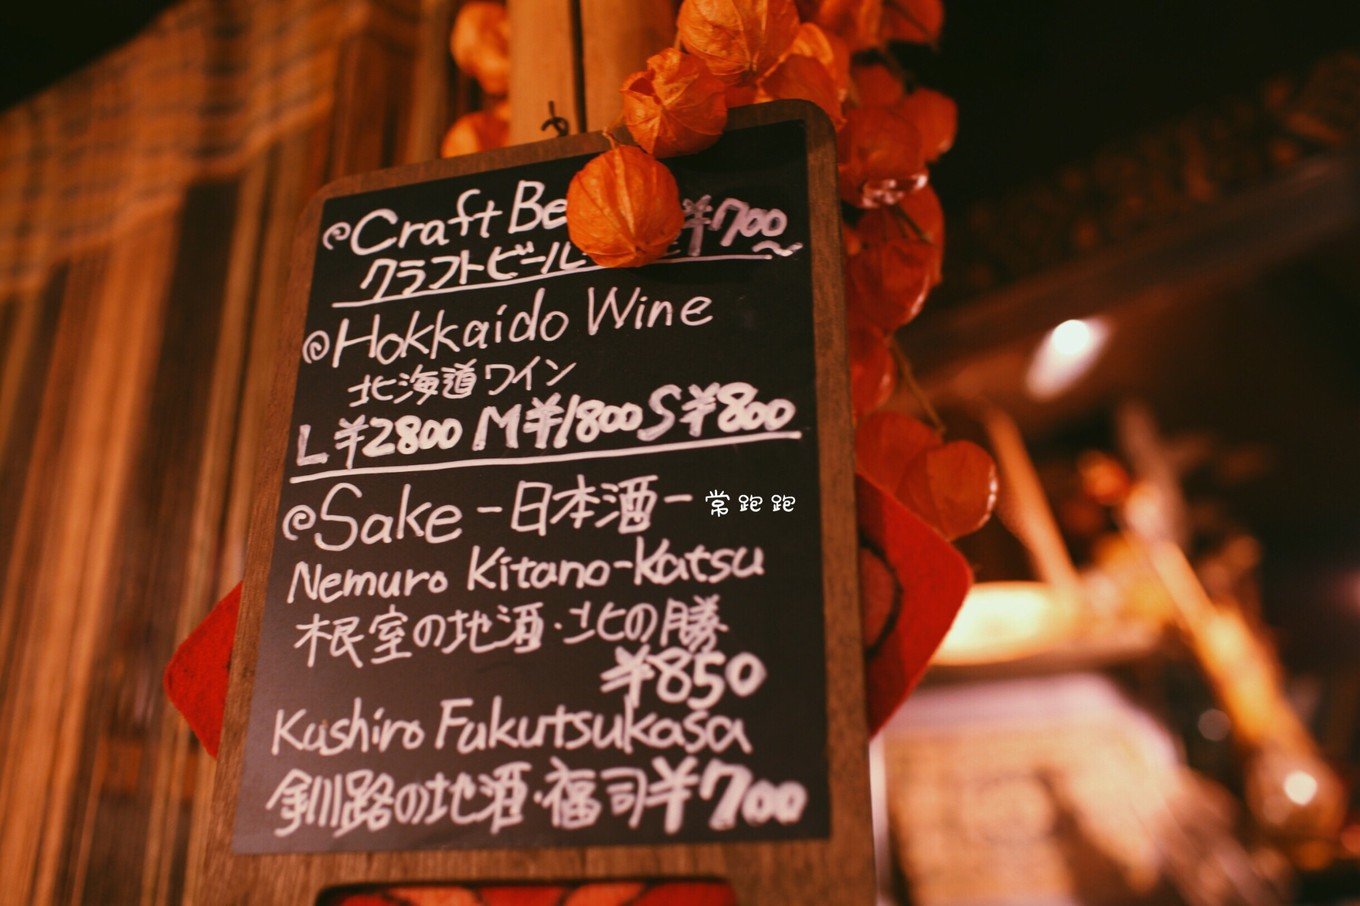 Craft Be ¥700～
クラフトビール
Hokkaido Wine
北海道ワイン
L ¥2800 M ¥1800 S ¥800
Sake -日本酒-
常跑跑
Nemuro Kitano-Katsu
根室の地酒・北の勝
¥850
Kushiro Fukutsukasa
釧路の地酒・福司 ¥700